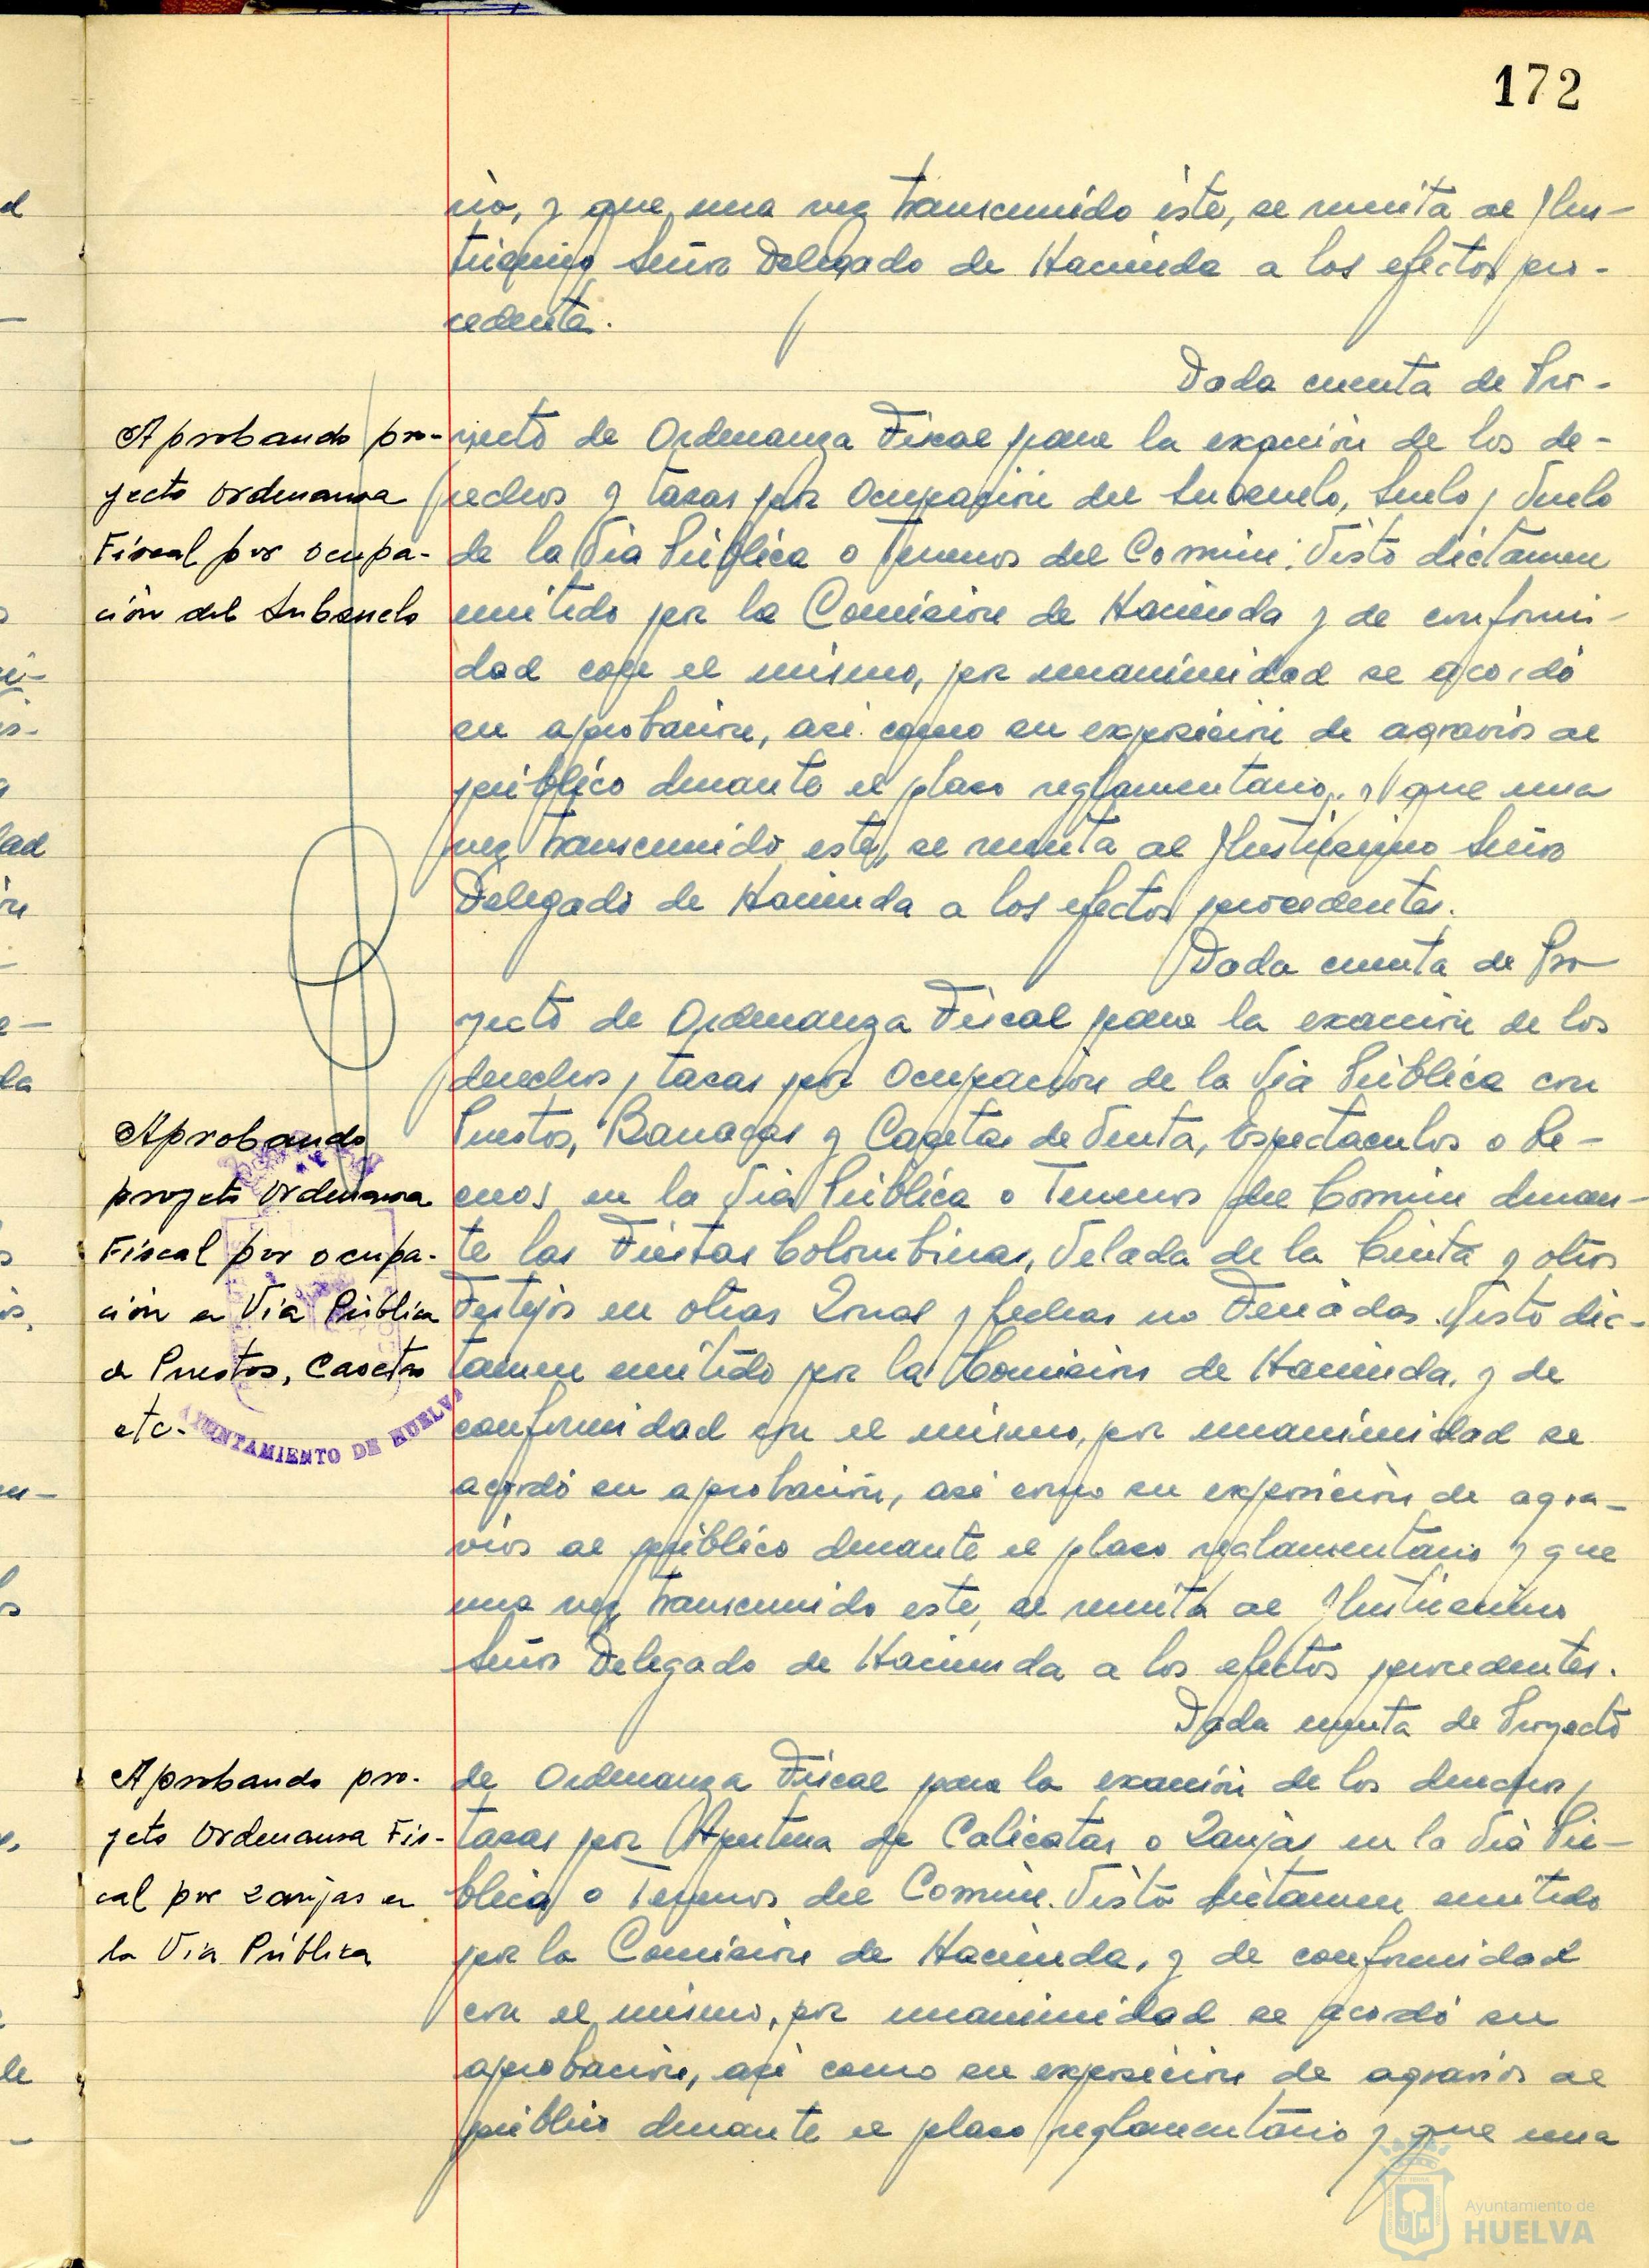 172
rio, y que, una vez transcurrido éste, se remita al Ilus-
trísimo Señor Delegado de Hacienda a los efectos pro-
cedentes.
Dada cuenta de Pro-
Aprobando pro-
yecto Ordenanza
Fiscal por ocupa-
ción del Subsuelo
yecto de Ordenanza Fiscal para la exacción de los de-
rechos y tasas por Ocupación del Subsuelo, Suelo y Vuelo
de la Vía Pública o Terrenos del Común. Visto dictamen
emitido por la Comisión de Hacienda y de conformi-
dad con el mismo, por unanimidad se acordó
su aprobación, así como su exposición de agravios al
público durante el plazo reglamentario, y que una
vez transcurrido este, se remita al Ilustrísimo Señor
Delegado de Hacienda a los efectos procedentes.
Dada cuenta de Pro-
yecto de Ordenanza Fiscal para la exacción de los
derechos y tasas por Ocupación de la Vía Pública con
Aprobando
proyeto Ordenanza
Fiscal por ocupa-
ción en Vía Pública
de Puestos, Casetas
etc.
AYUNTAMIENTO DE HUELVA
Puestos, Barracas y Casetas de Venta, Espectáculos o Re-
creos en la Vía Pública o Terrenos del Común duran-
te las Fiestas Colombinas, Velada de la Cinta y otros
Festejos en otras Zonas y fechas no Feriadas. Visto dic-
tamen emitido por la Comisión de Hacienda, y de
conformidad con el mismo, por unanimidad se
acordó su aprobación, así como su exposición de agra-
vios al público durante el plazo reglamentario y que
una vez transcurrido este, se remita al Ilustrísimo
Señor Delegado de Hacienda a los efectos procedentes.
Dada cuenta de Proyecto
Aprobando pro-
yeto Ordenanza Fis-
cal por zanjas en
la Vía Pública
de Ordenanza Fiscal para la exacción de los derechos y
tasas por Apertura de Calicatas o Zanjas en la Vía Pú-
blica o Terrenos del Común. Visto dictamen emitido
por la Comisión de Hacienda, y de conformidad
con el mismo, por unanimidad se acordó su
aprobación, así como su exposición de agravios al
público durante el plazo reglamentario y que una
Ayuntamiento de
HUELVA